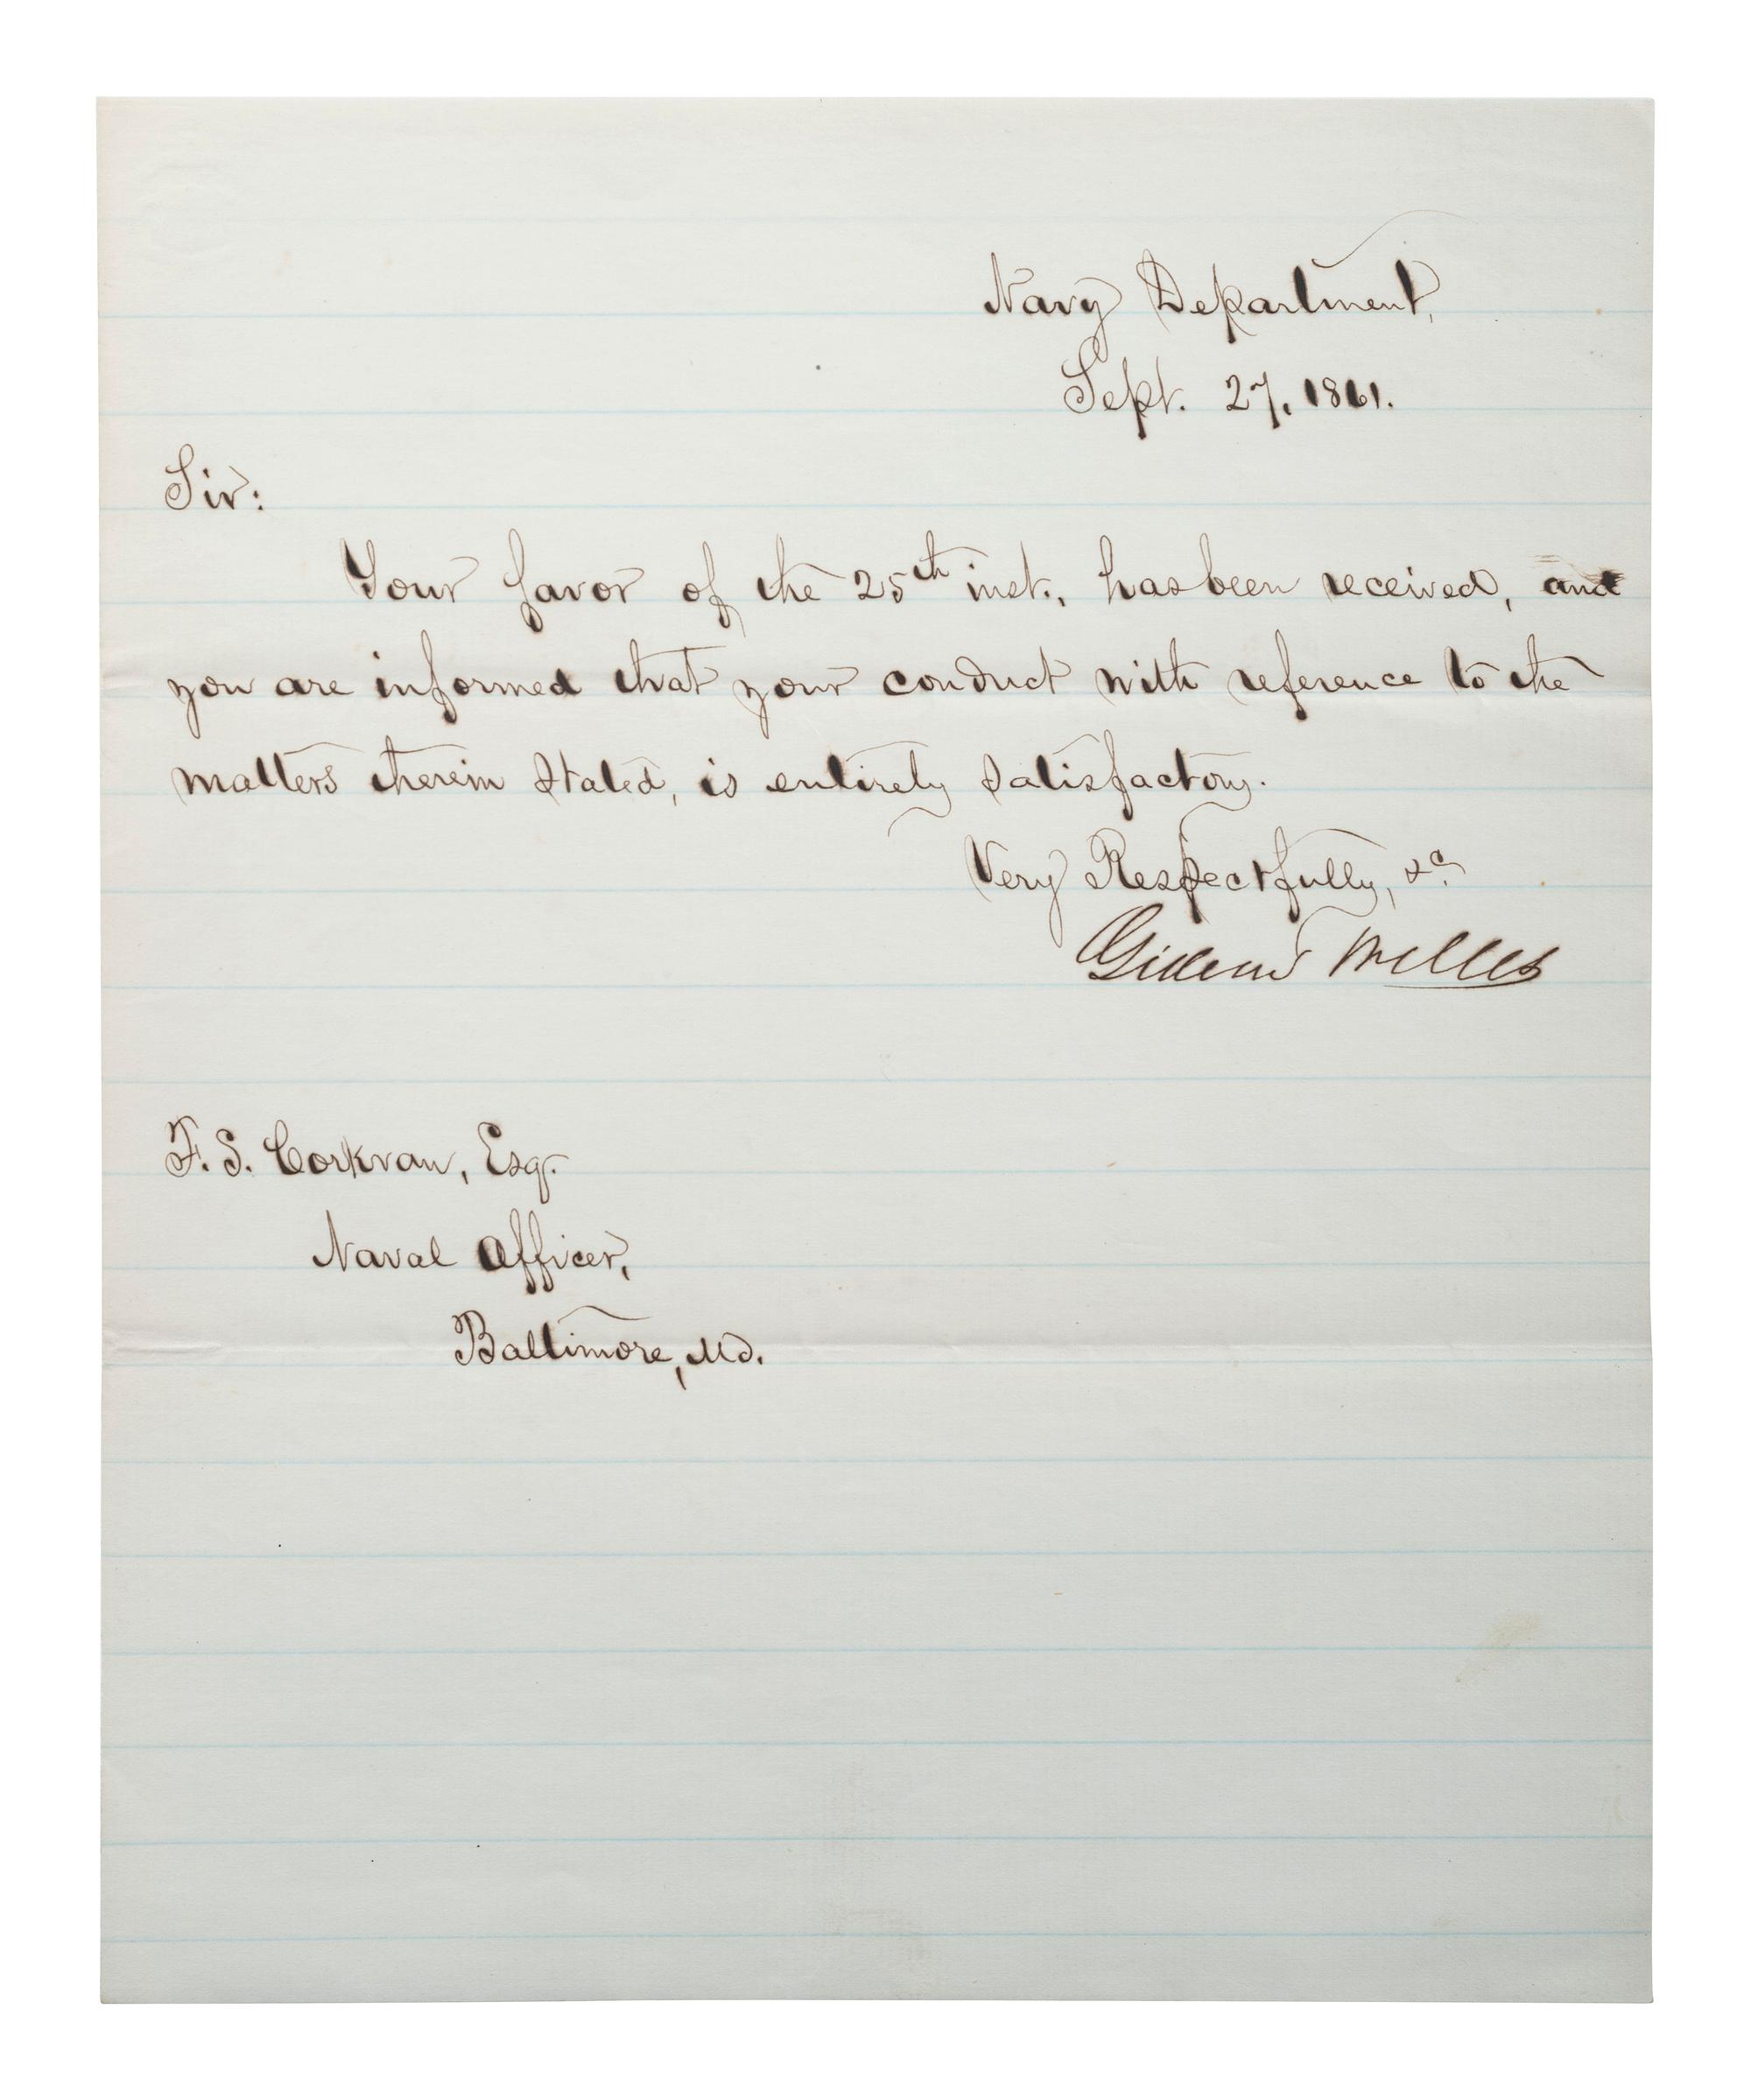 Navy Department,
Sept. 27, 1861.
Sir:
Your favor of the 25th inst., has been received, and
you are informed that your conduct with reference to the
matters therein stated, is entirely satisfactory.
Very Respectfully, &c.
Gideon Welles
F. S. Corkran, Esq.
Naval Officer,
Baltimore, Md.